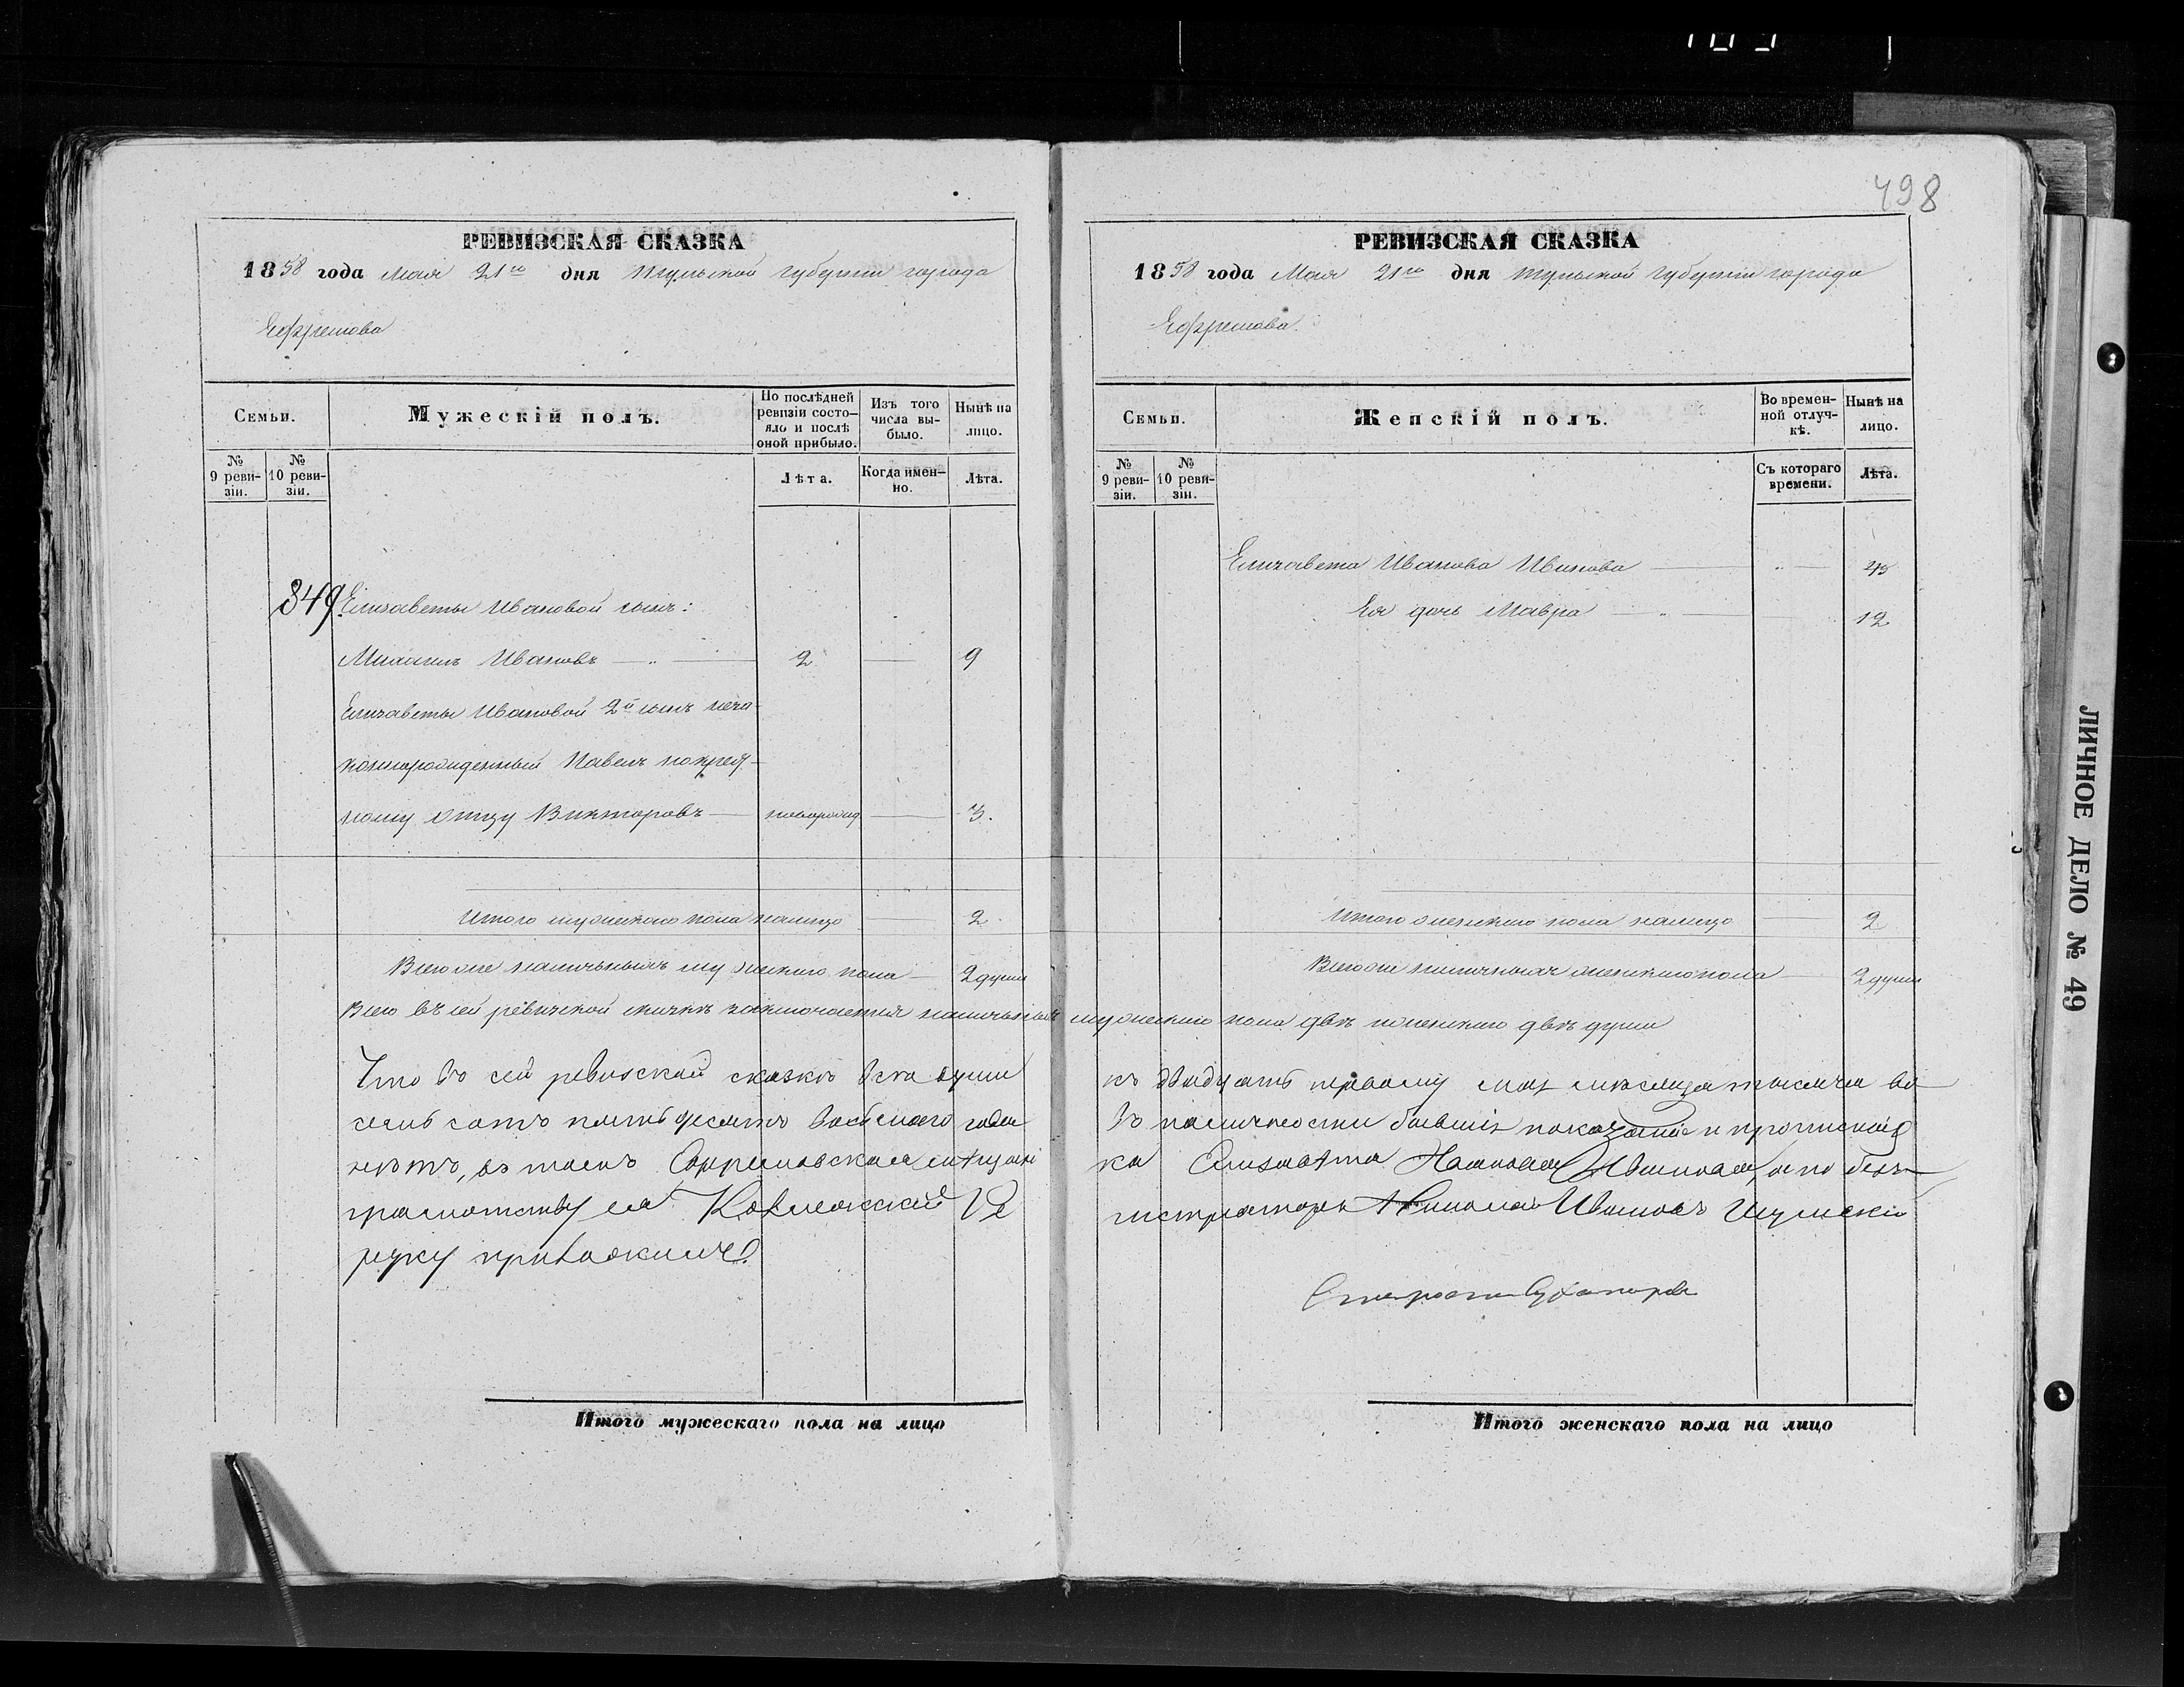 498
РЕВИЗСКАЯ СКАЗКА
1858 года Мая 21го дня Тульской губернии города
Ефремова
Семьи.
Мужескій полъ.
По послѣдней ревизіи состояло и послѣ оной прибыло.
Изъ того числа выбыло.
Нынѣ на лицо.
№ 9 ревизіи.
№ 10 ревизіи.
Лѣта.
Когда именно.
Лѣта.
349 Елизаветы Ивановой сынъ:
Михаилъ Ивановъ — „ — 2 — 9
Елизаветы Ивановой 2й сынъ неза-
коннорожденный Павелъ по крест-
ному отцу Викторовъ — новорожд — 3.
Итого мужескаго пола налицо — 2.
Всего же наличныхъ мужескаго пола — 2 души
Всего въ сей ревизской сказкѣ заключается наличныхъ мужескаго пола двѣ и женскаго двѣ души
Что въ сей ревизской сказкѣ всѣ души
семь сотъ пятьдесятъ восьмаго года
нѣтъ, въ томъ Ефремовская мѣщан
грамотству ея Коллежскій Ре
руку приложилъ.
РЕВИЗСКАЯ СКАЗКА
1858 года Мая 21го дня Тульской губернии города
Ефремова.
Семьи.
Женскій полъ.
Во временной отлучкѣ.
Нынѣ на лицо.
№ 9 ревизіи.
№ 10 ревизіи.
Съ котораго времени.
Лѣта.
Елизавета Иванова Иванова — „ — 45
Ея дочь Мавра — „ — 12
Итого женскаго пола налицо — 2
Всего же наличныхъ женскаго пола — 2 души
къ двадцать первому мая мѣсяца тысяча во
въ наличности бывшія показаны и прописной
ка Елизавета Иванова, а по без
гистраторъ Николай Ивановъ Шумскій
Староста
Итого мужескаго пола на лицо
Итого женскаго пола на лицо
ЛИЧНОЕ ДЕЛО № 49